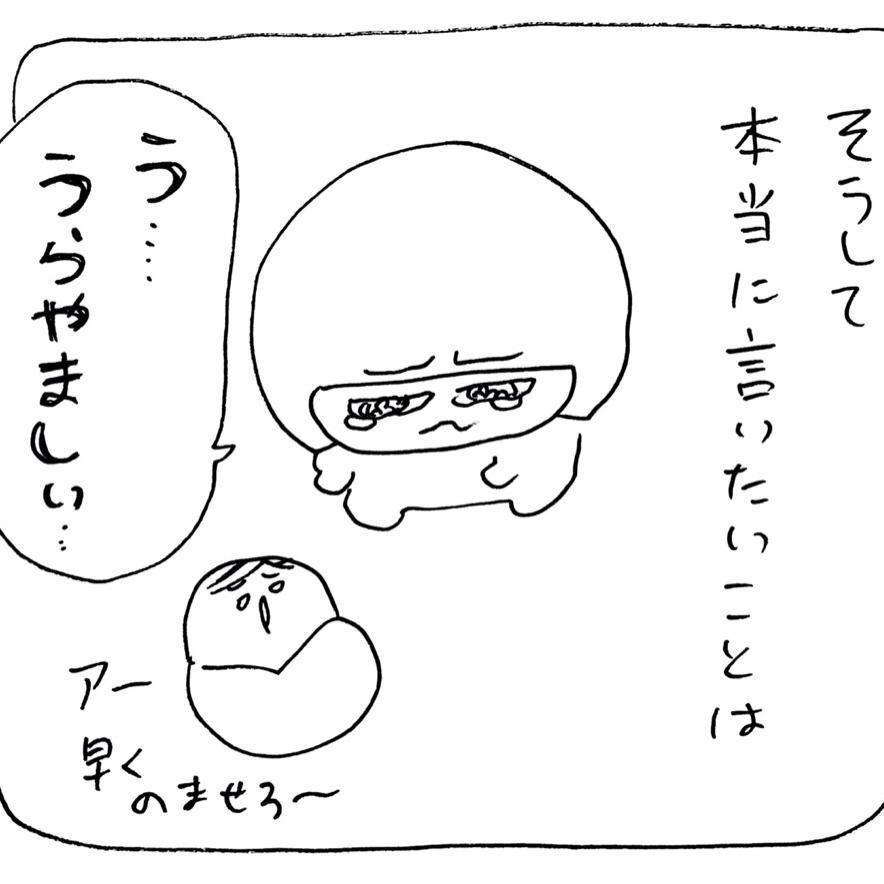 そうして
本当に言いたいことは
う‥‥
うらやましい…
アー
早く
のませろ〜